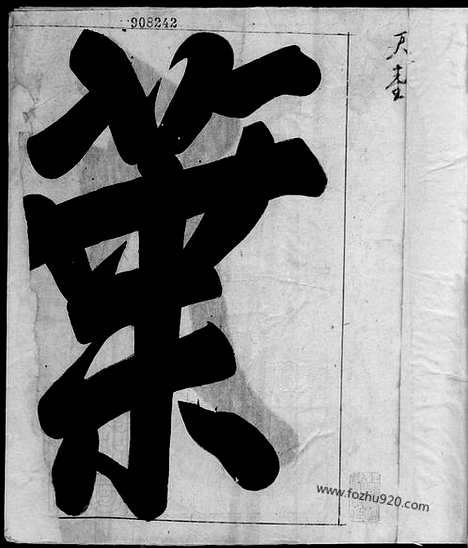 908242
葉
www.fozhu920.com